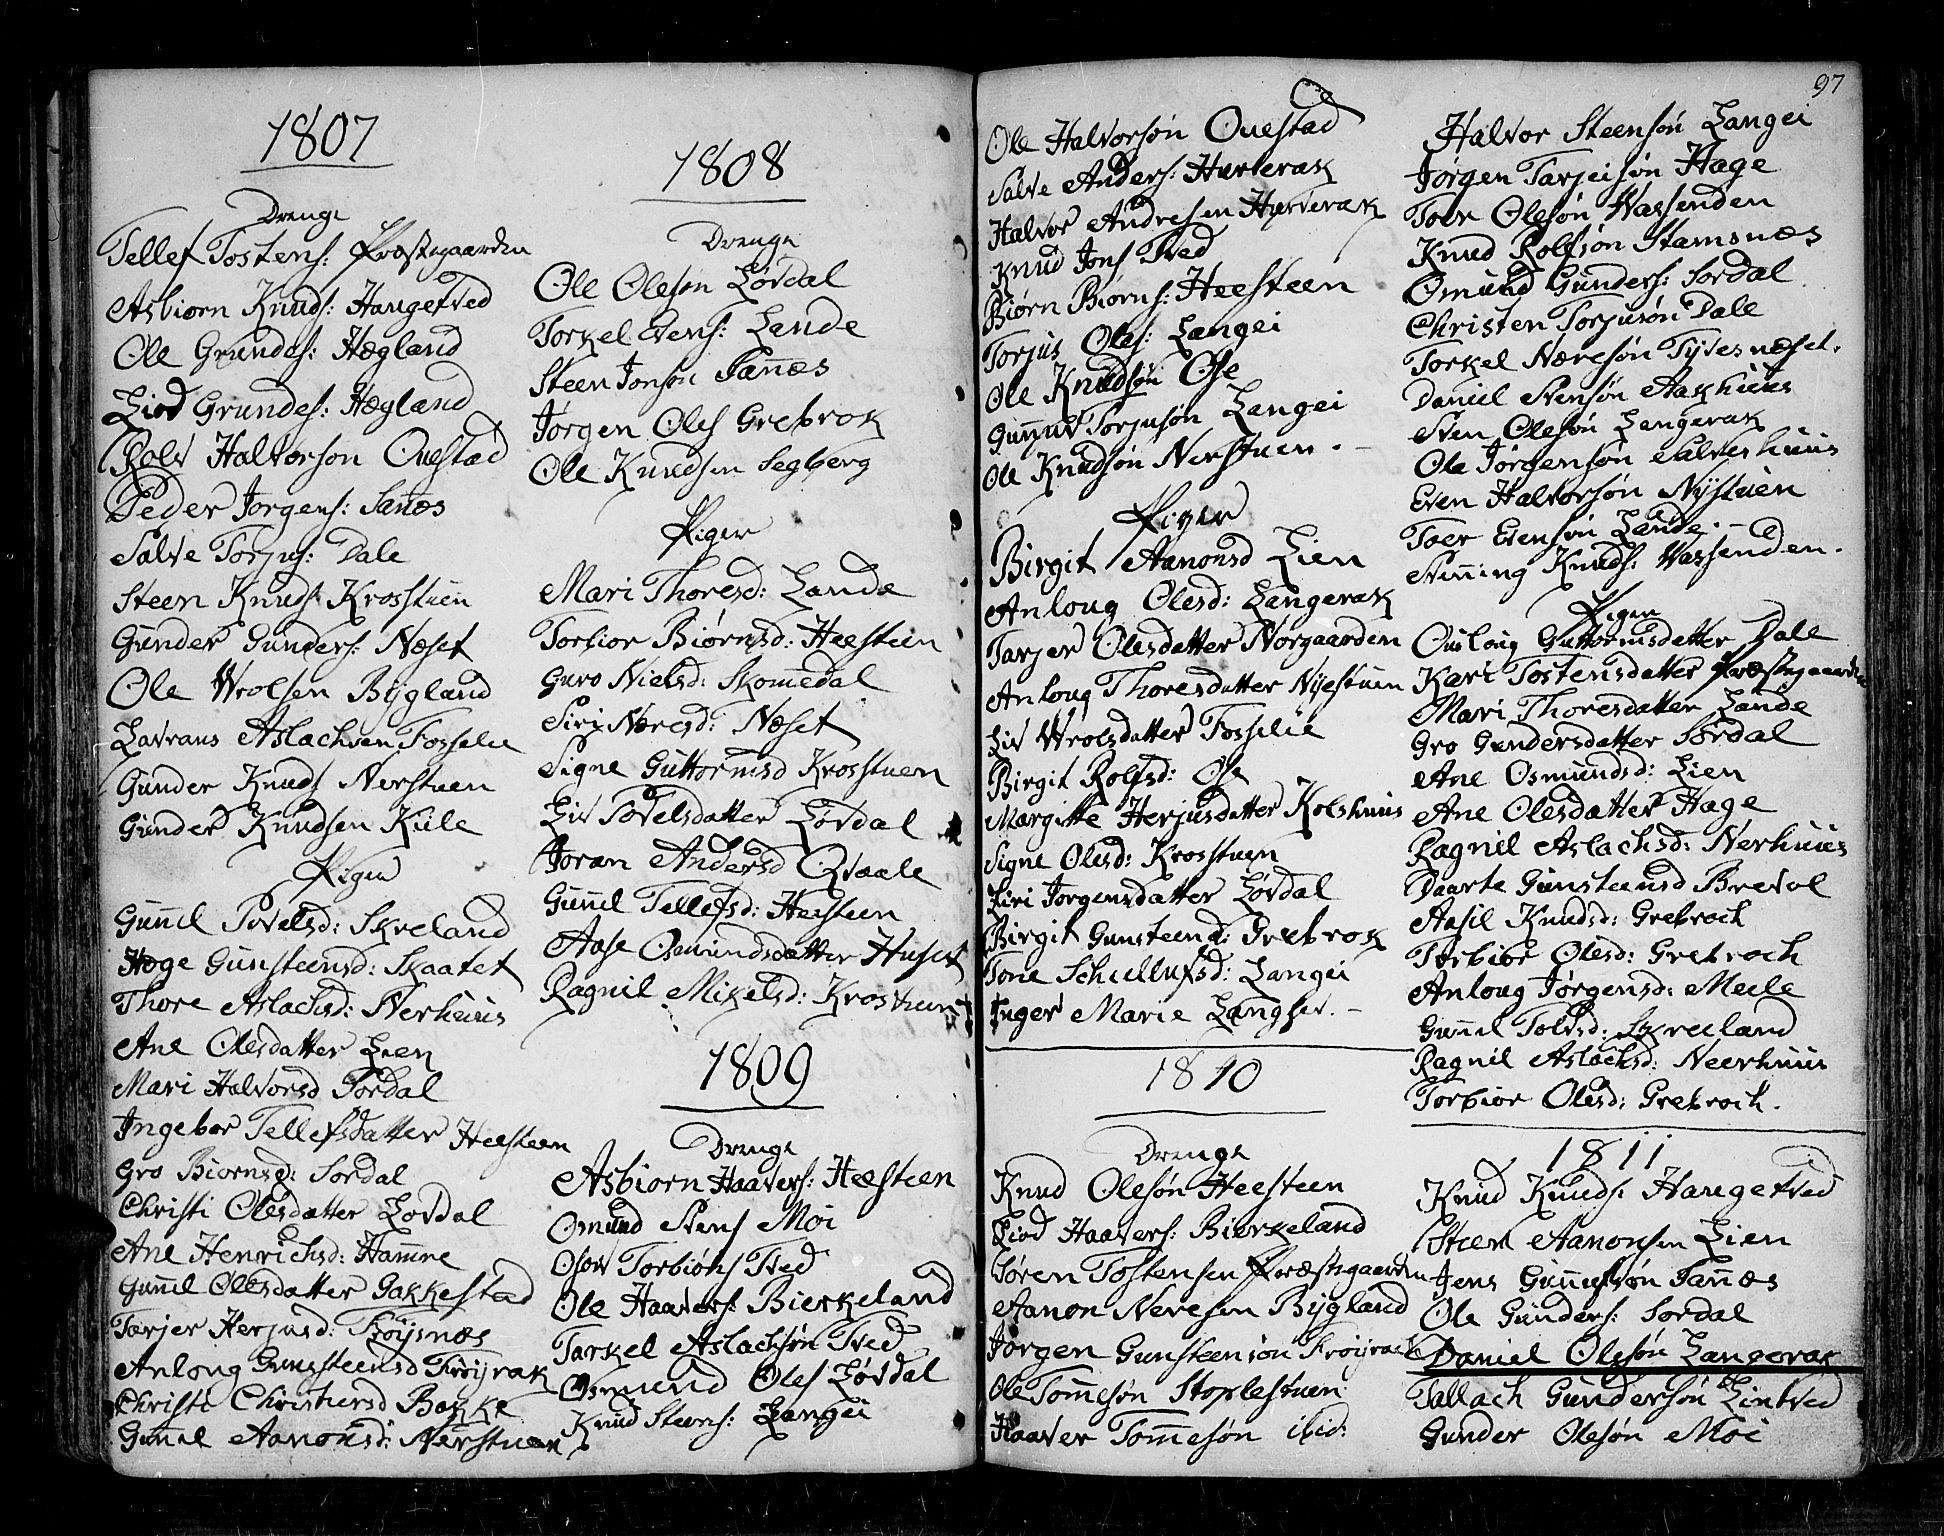 1807
Drenge
Tellef Tostens: Præstegaarden
Asbiorn Knuds: Haugetved
Ole Grundes: Hægland
Liod Grundes: Hægland
Rolv Halvorson Ouestad
Peder Jorgens: Sanæs
Salve Torjus: Dale
Steen Knuds: Krosstuen
Gunder Gunders: Næset
Ole Wrolsen Bygland
Lavrans Aslachsen Fosselie
Gunder Knuds Nerstuen
Gunder Knudsen Kiile
Piger
Gunnil Povelsd: Skreland
Hæge Gunsteensd: Skaatet
Thore Aslachsd: Nerhuus
Ane Olesdatter Lien
Mari Halvorsd Sordal
Ingebor Tellefsdatter Heesteen
Gro Biornsd: Sordal
Christi Olesdatter Lovdal
Ane Henrichsd: Hamre
Gunnil Olesdatter Jakkestad
Tarjer Herjusd: Frøysnæs
Anlaug Gunsteensd Frøyrak
Christi Christensd Bakke
Gunnil Aanonsd: Nerstuen
1808
Drenge
Ole Oleson Løvdal
Torkel Evens: Lande
Steen Jonson Sanæs
Jørgen Oles Grebrok
Ole Knudsen Segberg
Piger
Mari Thoresd: Lande
Torbior Biørnsd: Heesteen
Guro Nielsd: Skomedal
Siri Næresd: Næset
Signe Guttormsd Krosstuen
Liv Tovelsdatter Løvdal
Joran Andersd Qvaale
Gunnil Tellefsd: Heesteen
Aase Osmundsdatter Huset
Ragnil Mikelsd: Krosstuen
1809
Drenge
Asbiorn Haavers: Heesteen
Osmund Stens Moi
Osov Torbiøns Tved
Ole Haavers: Bierkeland
Tarkel Aslachsøn Tved
Osmund Oles Løvdal
Knud Steens: Langei
97
Ole Halvorsøn Ouestad
Salve Anders: Hurverak
Halvor Andresen Hurverak
Knud Jons Tved
Biørn Biorns: Heesteen
Torjus Oles: Langei
Ole Knudsøn Ose
Gunnuv Torjusøn Langei
Ole Knudsøn Nerstuen. -
Piger
Birgit Aanonsd Lien
Anloug Olesd: Langerak
Tarjer Olesdatter Norgaarden
Anloug Thoresdatter Nyestuen
Liv Wrolsdatter Fosselie
Birgit Rolfsd: Ose
Margitte Herjusdatter Kolshuus
Signe Olesd: Krosstuen
Siri Jorgensdatter Løvdal
Birgit Gunsteensd: Grebrok
Tone Schiellufsd: Langei
Inger Marie Langser. -
1810
Drenge
Knud Olesøn Heesteen
Liod Haavers: Bierkeland
Søren Tostensen Præstegaarden
Aanon Neresen Bygland
Jørgen Gunsteensøn Frøyrach
Ole Tommesøn Stoplestuen
Haaver Tommesøn ibid:
Halvor Steensøn Langei
Jørgen Tarjeisøn Hage
Toer Olesøn Wassenden
Knud Rolfsøn Stamsnæs
Osmund Gunders: Sordal
Christen Torjusøn Dale
Torkel Næresøn Tytesnæset.
Daniel Stensøn Aakhuus
Sten Olesøn Langerak
Ole Jørgensøn Salveshuus
Even Halvorsøn Nystuen
Toer Evensøn Lande. -
Stenning Knuds: Wassenden.
Piger
Ouloug Guttormsdatter Dale
Kari Tostensdatter Præstegaarden
Mari Thoresdatter Lande
Gro Gundersdatter Sordal
Ane Osmundsd: Lien
Ane Olesdatter Hage
Ragnil Aslachsd: Nerhuus
Daarte Gunsteensd Brevol
Aasil Knudsd: Grebroch
Torbior Olesd: Grebroch
Anloug Jørgensd: Meile
Gunnil Tolvsd: Skreeland
Ragnil Aslachsd: Neerhuus
Torbior Olesd: Grebroch.
1811
Knud Knuds: Haugetved
Steen Aanonsen Lien
Jens Gunnufsøn Sanæs
Ole Gunders: Sordal
Daniel Olesøn Langerak
Tallach Gundersøn Lintved
Gunder Olesøn Moi